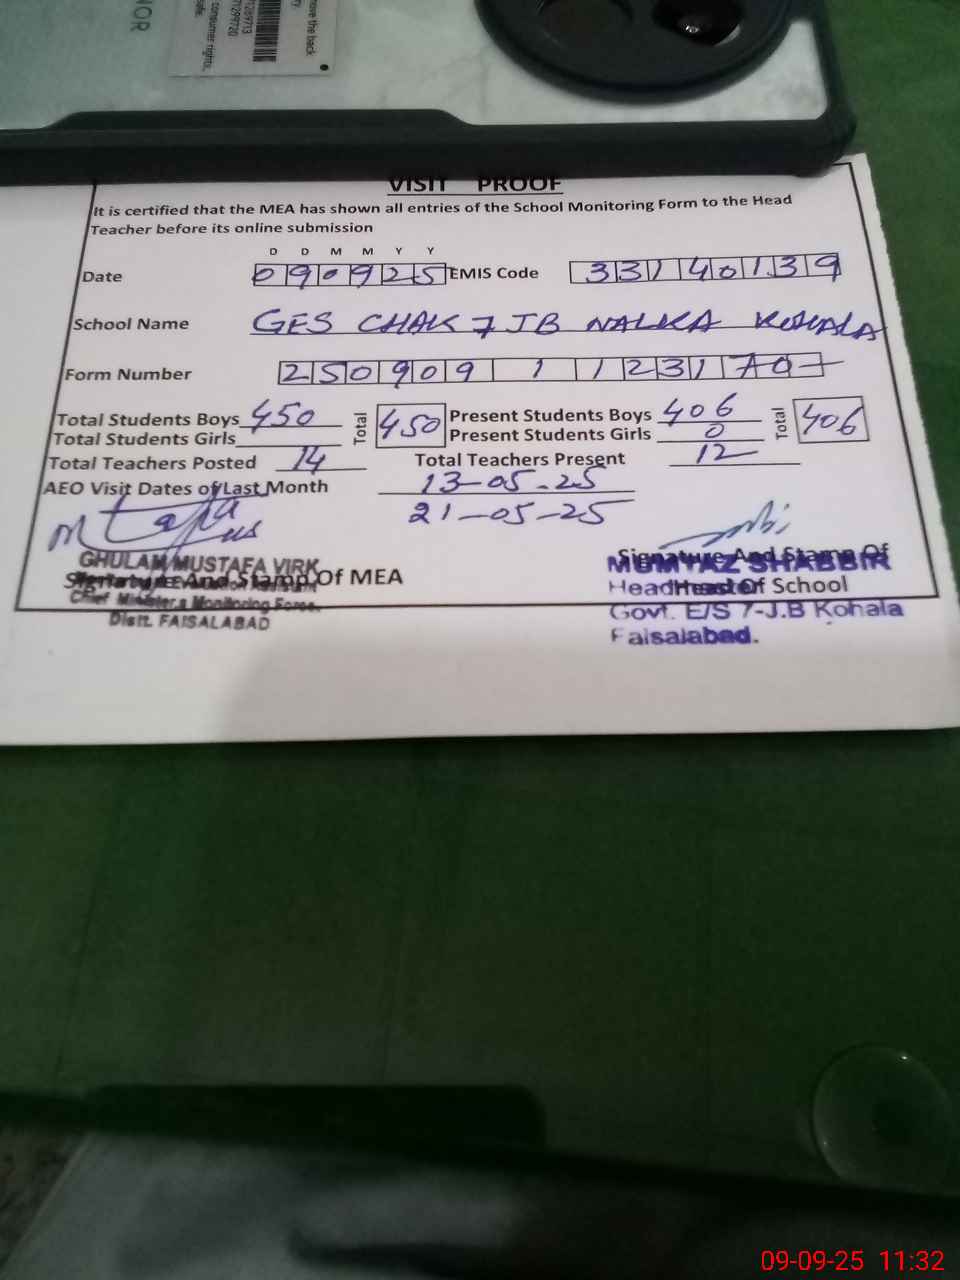 VISIT PROOF
It is certified that the MEA has shown all entries of the School Monitoring Form to the Head
Teacher before its online submission
D D M M Y Y
Date 090925 EMIS Code 33140139
School Name GES CHAK 7 JB NALKA KOHALA
Form Number 250909 1 1231 70
Total Students Boys 450 Total 450 Present Students Boys 406 Total 406
Total Students Girls Present Students Girls 0
Total Teachers Posted 14 Total Teachers Present 12
AEO Visit Dates of Last Month 13-05-25
21-05-25
GHULAM MUSTAFA VIRK
Signature And Stamp Of MEA
Chief Minister's Monitoring Force.
Distt. FAISALABAD
Signature And Stamp Of
MUMTAZ SHABBIR
Head Of School
Headmaster
Govt. E/S 7-J.B Kohala
Faisalabad.
09-09-25 11:32